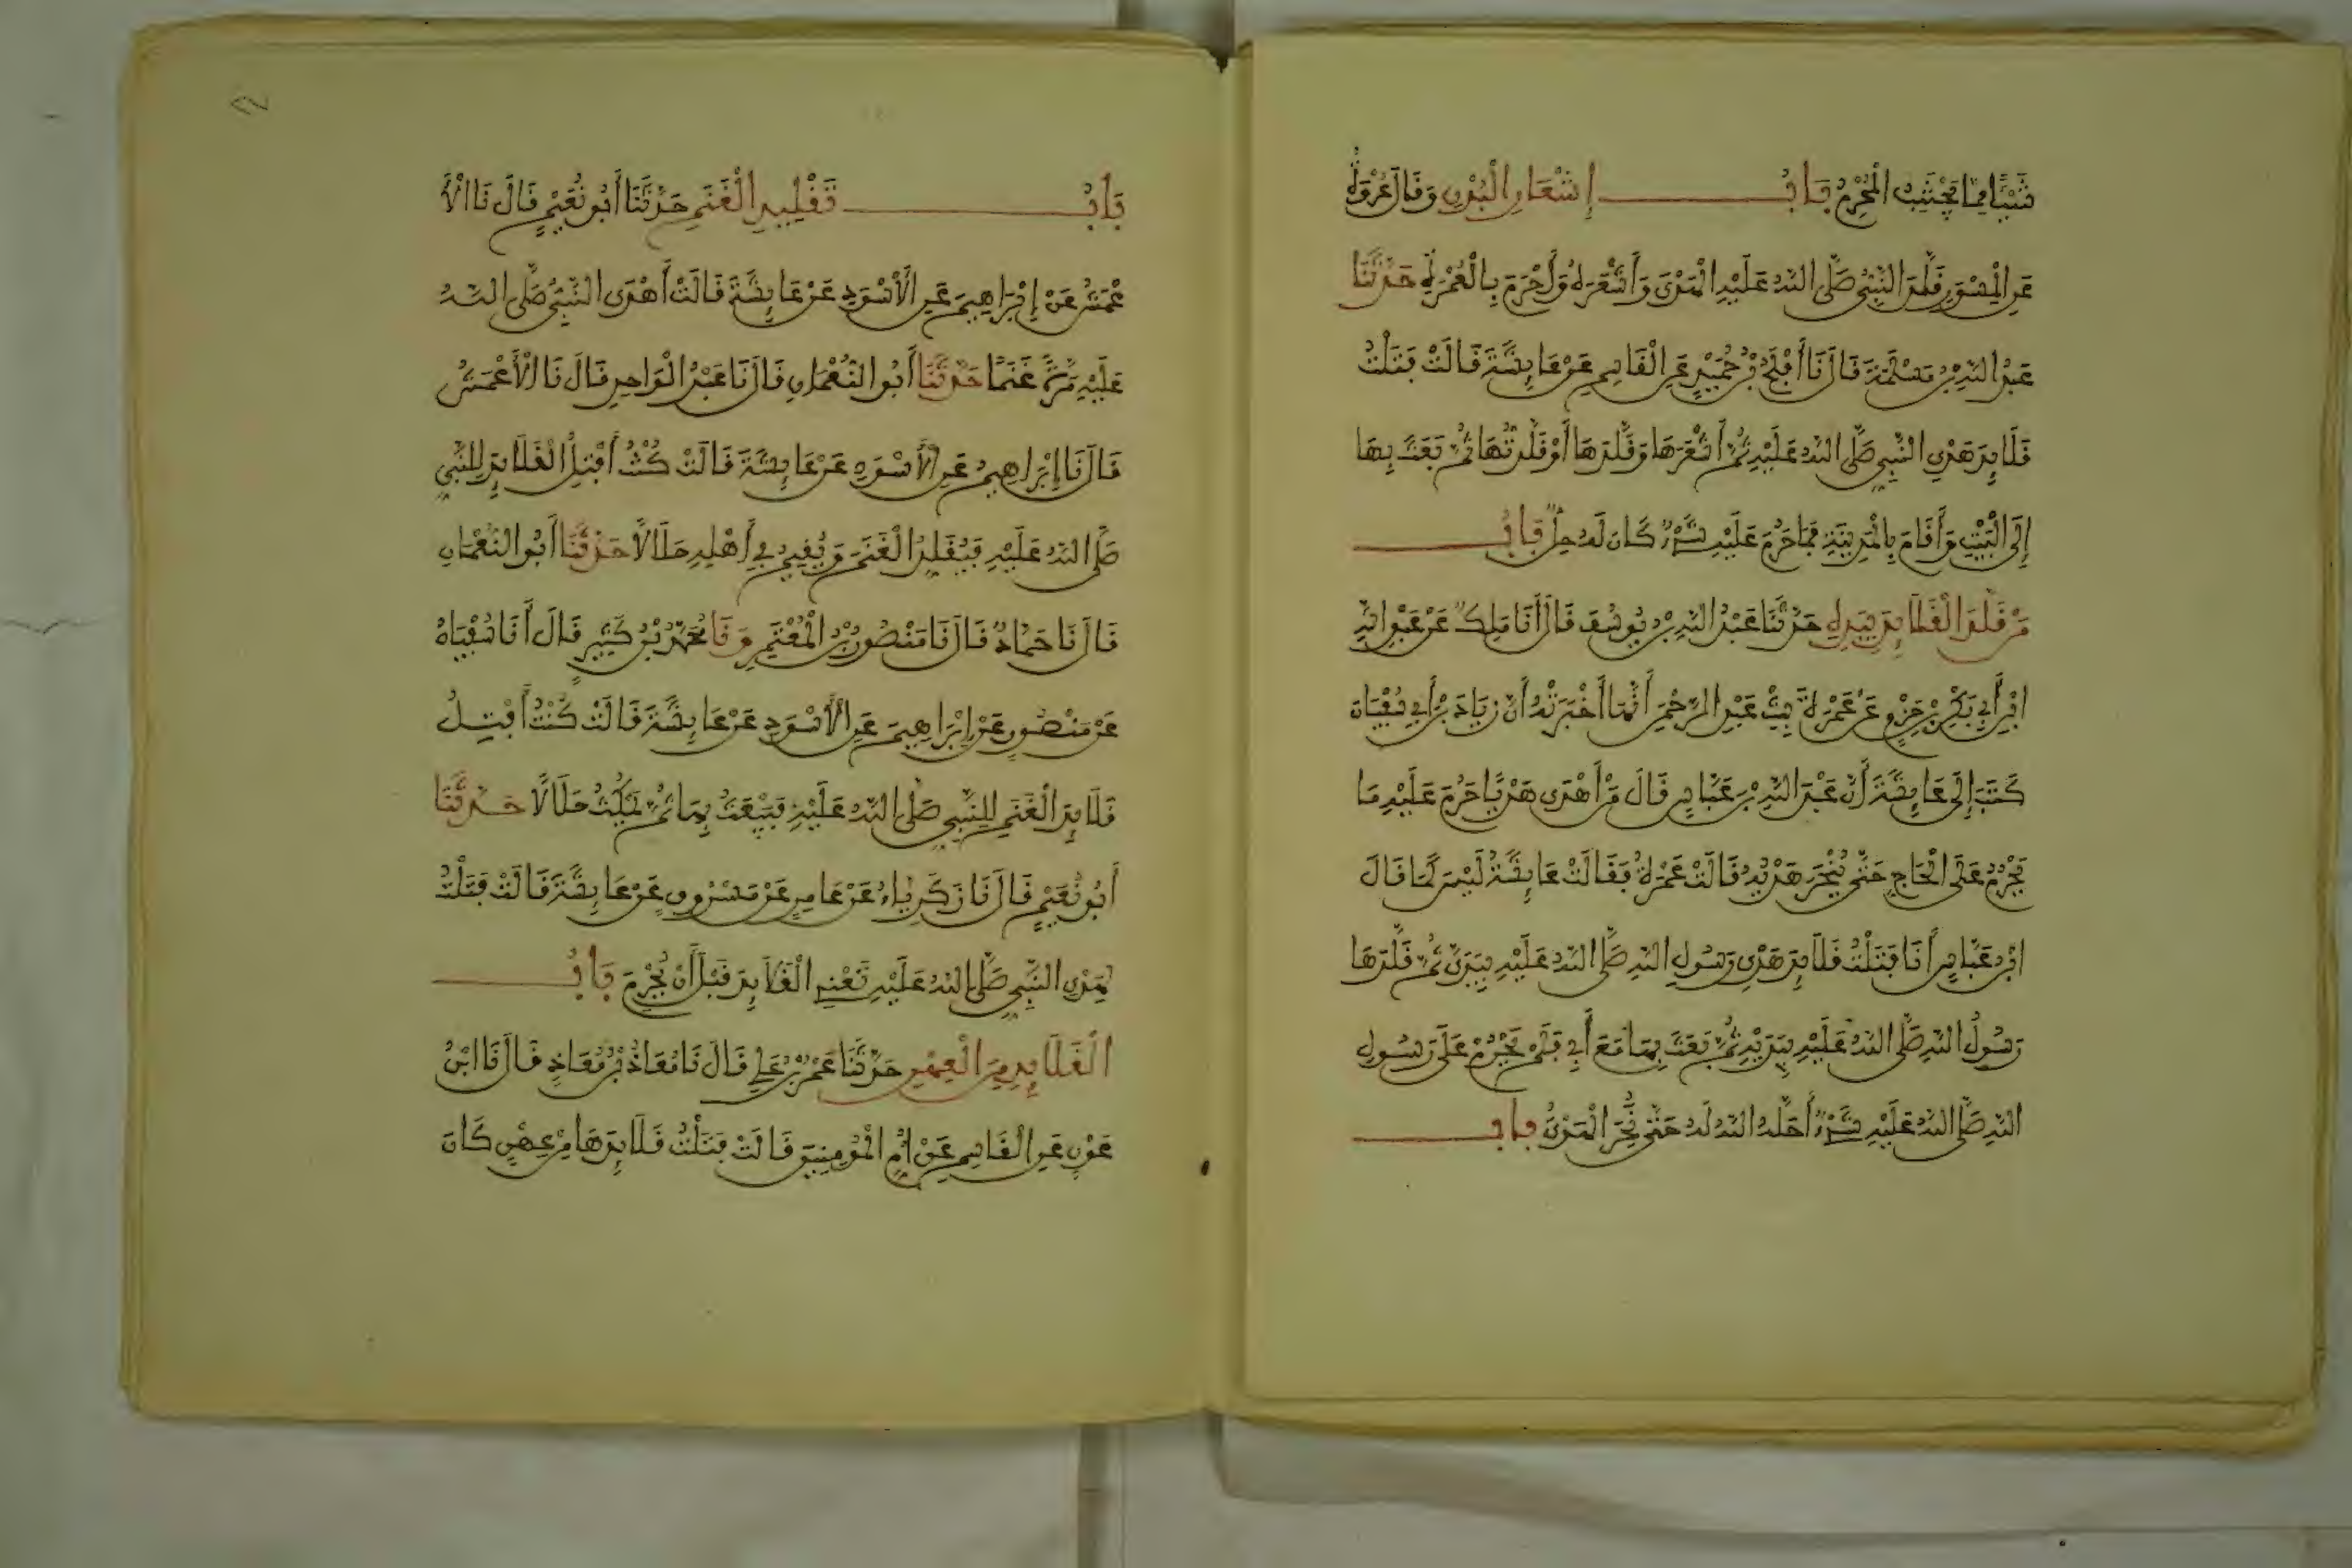 شَيْئًا مِمَّا يَجْتَنِبُ الْمُحْرِمُ بَابُ إِشْعَارِ الْبُدْنِ وَقَالَ عُرْوَةُ
عَنِ الْمِسْوَرِ قَلَّدَ النَّبِيُّ صَلَّى اللهُ عَلَيْهِ الْهَدْيَ وَأَشْعَرَهُ وَأَحْرَمَ بِالْعُمْرَةِ حَدَّثَنَا
عَبْدُ اللهِ بْنُ مَسْلَمَةَ قَالَ نَا أَفْلَحُ بْنُ حُمَيْدٍ عَنِ الْقَاسِمِ عَنْ عَائِشَةَ قَالَتْ فَتَلْتُ
قَلَائِدَ هَدْيِ النَّبِيِّ صَلَّى اللهُ عَلَيْهِ ثُمَّ أَشْعَرَهَا وَقَلَّدَهَا أَوْ قَلَّدْتُهَا ثُمَّ بَعَثَ بِهَا
إِلَى الْبَيْتِ وَأَقَامَ بِالْمَدِينَةِ فَمَا حَرُمَ عَلَيْهِ شَيْءٌ كَانَ لَهُ حِلٌّ بَابُ
مَنْ قَلَّدَ الْقَلَائِدَ بِيَدِهِ حَدَّثَنَا عَبْدُ اللهِ بْنُ يُوسُفَ قَالَ أَنَا مَلِكٌ عَنْ عَبْدِ اللهِ
ابْنِ أَبِي بَكْرِ بْنِ حَزْمٍ عَنْ عَمْرَةَ بِنْتِ عَبْدِ الرَّحْمَنِ أَنَّهَا أَخْبَرَتْهُ أَنَّ زِيَادَ بْنَ أَبِي سُفْيَانَ
كَتَبَ إِلَى عَائِشَةَ أَنَّ عَبْدَ اللهِ بْنَ عَبَّاسٍ قَالَ مَنْ أَهْدَى هَدْيًا حَرُمَ عَلَيْهِ مَا
يَحْرُمُ عَلَى الْحَاجِّ حَتَّى يُنْحَرَ هَدْيُهُ قَالَتْ عَمْرَةُ فَقَالَتْ عَائِشَةُ لَيْسَ كَمَا قَالَ
ابْنُ عَبَّاسٍ أَنَا فَتَلْتُ قَلَائِدَ هَدْيِ رَسُولِ اللهِ صَلَّى اللهُ عَلَيْهِ بِيَدَيَّ ثُمَّ قَلَّدَهَا
رَسُولُ اللهِ صَلَّى اللهُ عَلَيْهِ بِيَدَيْهِ ثُمَّ بَعَثَ بِهَا مَعَ أَبِي فَلَمْ يَحْرُمْ عَلَى رَسُولِ
اللهِ صَلَّى اللهُ عَلَيْهِ شَيْءٌ أَحَلَّهُ اللهُ لَهُ حَتَّى نُحِرَ الْهَدْيُ بَابُ
٢٧
بَابُ تَقْلِيدِ الْغَنَمِ حَدَّثَنَا أَبُو نُعَيْمٍ قَالَ نَا الْأَ
عْمَشُ عَنْ إِبْرَاهِيمَ عَنِ الْأَسْوَدِ عَنْ عَائِشَةَ قَالَتْ أَهْدَى النَّبِيُّ صَلَّى اللهُ
عَلَيْهِ مَرَّةً غَنَمًا حَدَّثَنَا أَبُو النُّعْمَانِ قَالَ نَا عَبْدُ الْوَاحِدِ قَالَ نَا الْأَعْمَشُ
قَالَ نَا إِبْرَاهِيمُ عَنِ الْأَسْوَدِ عَنْ عَائِشَةَ قَالَتْ كُنْتُ أَفْتِلُ الْقَلَائِدَ لِلنَّبِيِّ
صَلَّى اللهُ عَلَيْهِ فَيُقَلِّدُ الْغَنَمَ وَيُقِيمُ فِي أَهْلِهِ حَلَالًا حَدَّثَنَا أَبُو النُّعْمَانِ
قَالَ نَا حَمَّادٌ قَالَ نَا مَنْصُورُ بْنُ الْمُعْتَمِرِ وَنَا مُحَمَّدُ بْنُ كَثِيرٍ قَالَ أَنَا سُفْيَانُ
عَنْ مَنْصُورٍ عَنْ إِبْرَاهِيمَ عَنِ الْأَسْوَدِ عَنْ عَائِشَةَ قَالَتْ كُنْتُ أَفْتِلُ
قَلَائِدَ الْغَنَمِ لِلنَّبِيِّ صَلَّى اللهُ عَلَيْهِ فَيَبْعَثُ بِهَا ثُمَّ يَمْكُثُ حَلَالًا حَدَّثَنَا
أَبُو نُعَيْمٍ قَالَ نَا زَكَرِيَّاءُ عَنْ عَامِرٍ عَنْ مَسْرُوقٍ عَنْ عَائِشَةَ قَالَتْ فَتَلْتُ
لِهَدْيِ النَّبِيِّ صَلَّى اللهُ عَلَيْهِ تَعْنِي الْقَلَائِدَ قَبْلَ أَنْ يُحْرِمَ بَابُ
الْقَلَائِدِ مِنَ الْعِهْنِ حَدَّثَنَا عَمْرُو بْنُ عَلِيٍّ قَالَ نَا مُعَاذُ بْنُ مُعَاذٍ قَالَ نَا ابْنُ
عَوْنٍ عَنِ الْقَاسِمِ عَنْ أُمِّ الْمُؤْمِنِينَ قَالَتْ فَتَلْتُ قَلَائِدَهَا مِنْ عِهْنٍ كَانَ